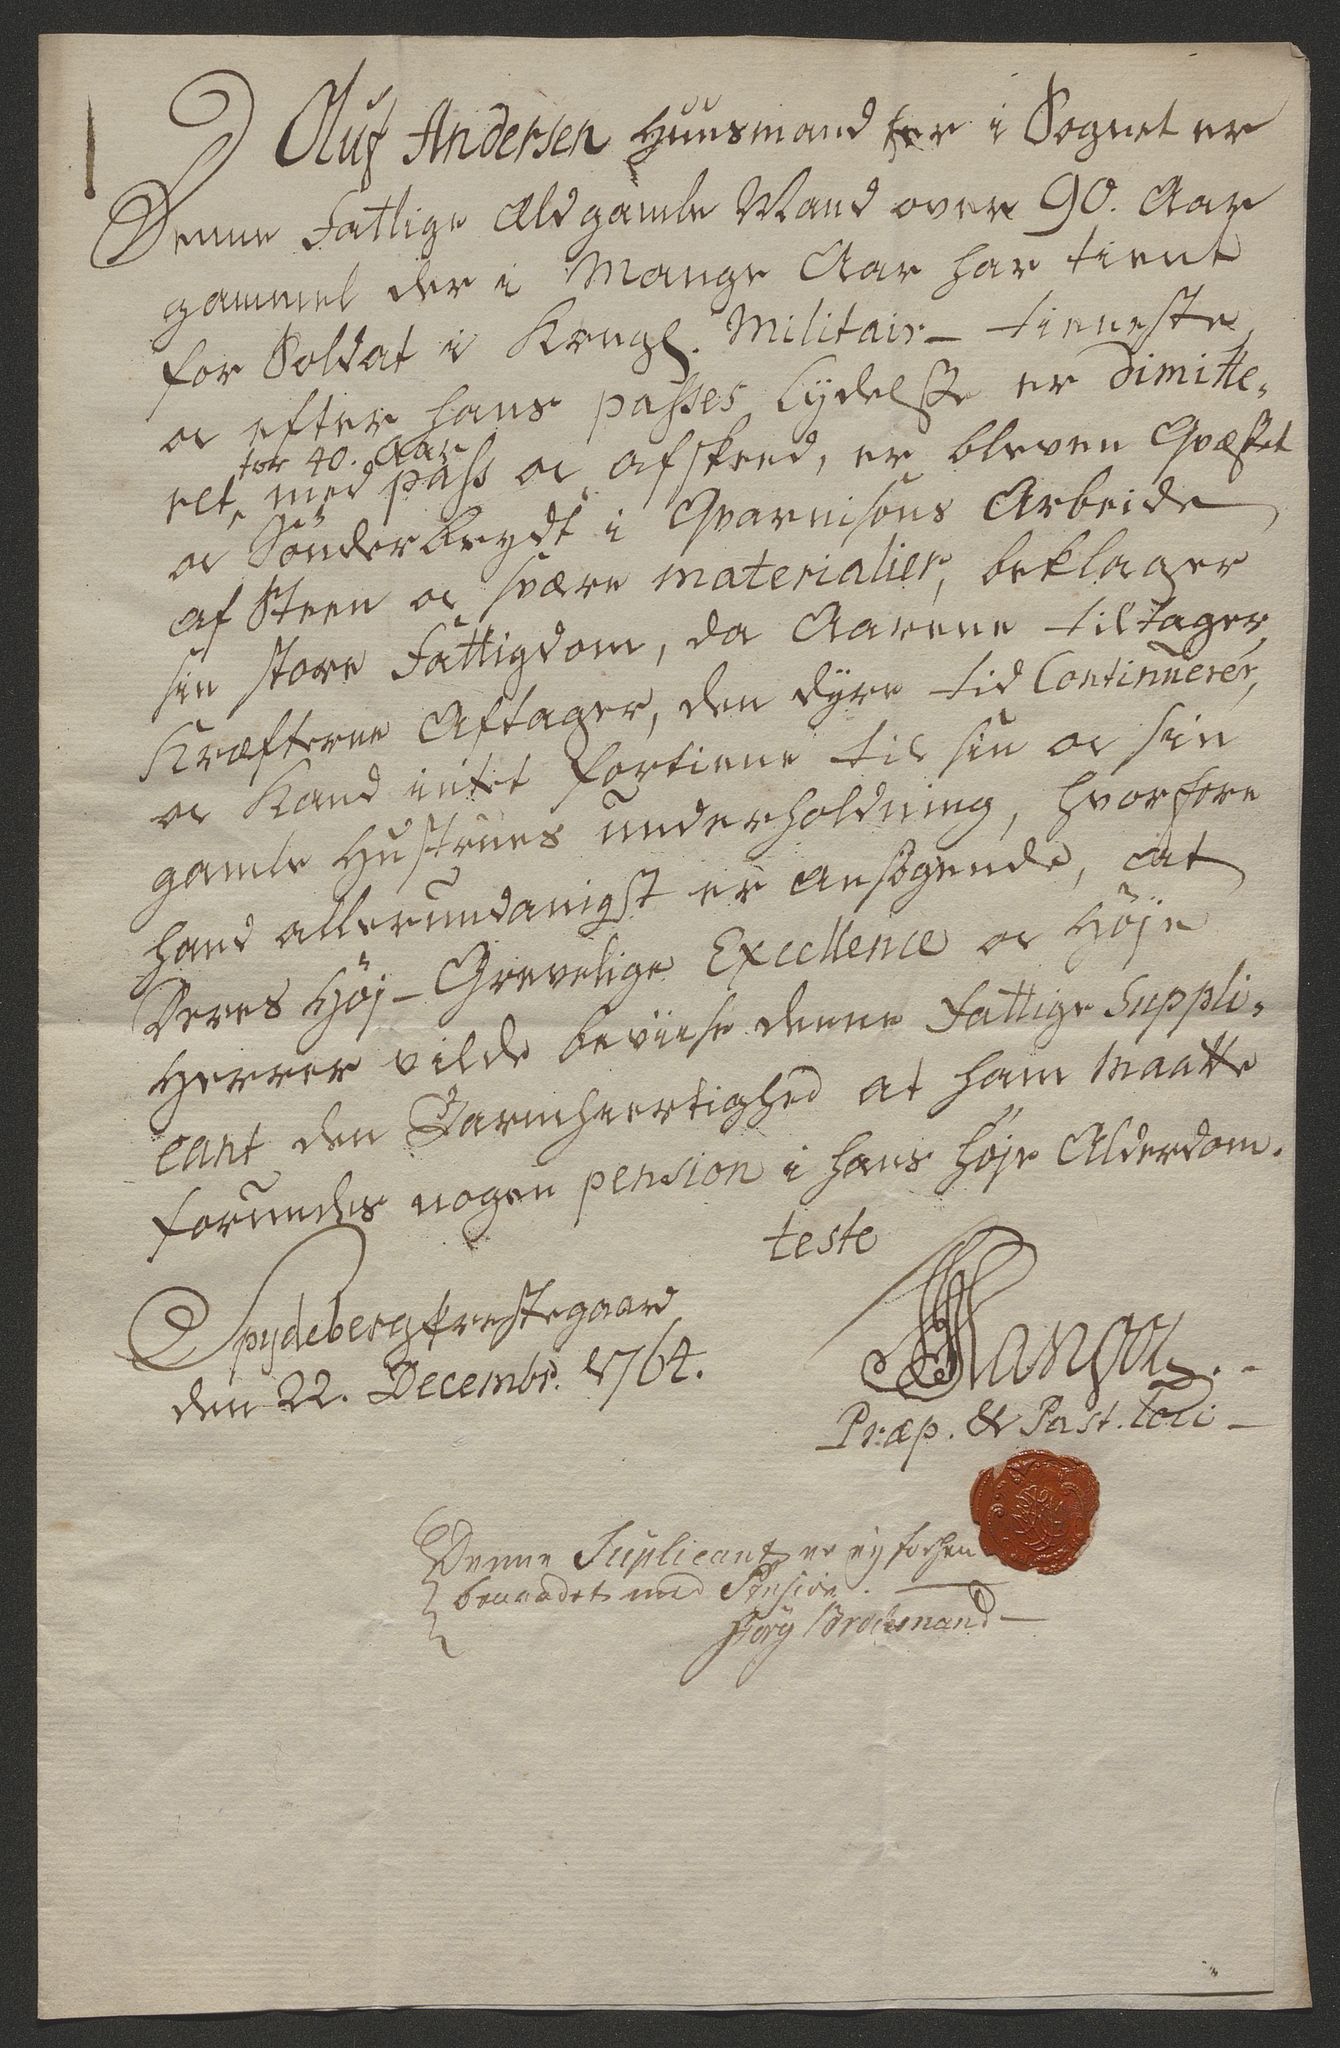 Oluf Andersen Huusmand her i Sognet er
Denne Fattige Ældgamle Mand over 90. Aar
gammel der i Mange Aar har tient
for Soldat i Kongl. Militair-tieneste
oc efter hans passes Lydelse er Dimitte-
ret for 40. Aar med pass oc afskeed, er bleven Qvæstet
oc Sönderbrydt i Qvarnisons Arbeide
af Steen oc svære materialier, beklager
sin store Fattigdom, da Aarene tiltager,
Kræfterne Aftager, den dyre tid Continuerer,
oc Kand intet fortiene til sin oc sin
gamle Hustrues underholdning, hvorfore
hand allerundanigst er ansögende, at
Deres Höj-Grevelige Excellence oc Höje
Herrer vilde beviise denne Fattige Suppli-
cant den Barmhiertighed at ham maatte
forundes nogen pension i hans höje Alderdom.
teste
Spydeberg Prestegaard
den 22. Decembr. 1764.
Præp. & Past. Loci
Denne Suplicant er ey forhen
benaadet med Pension.
Jörg Brochmand